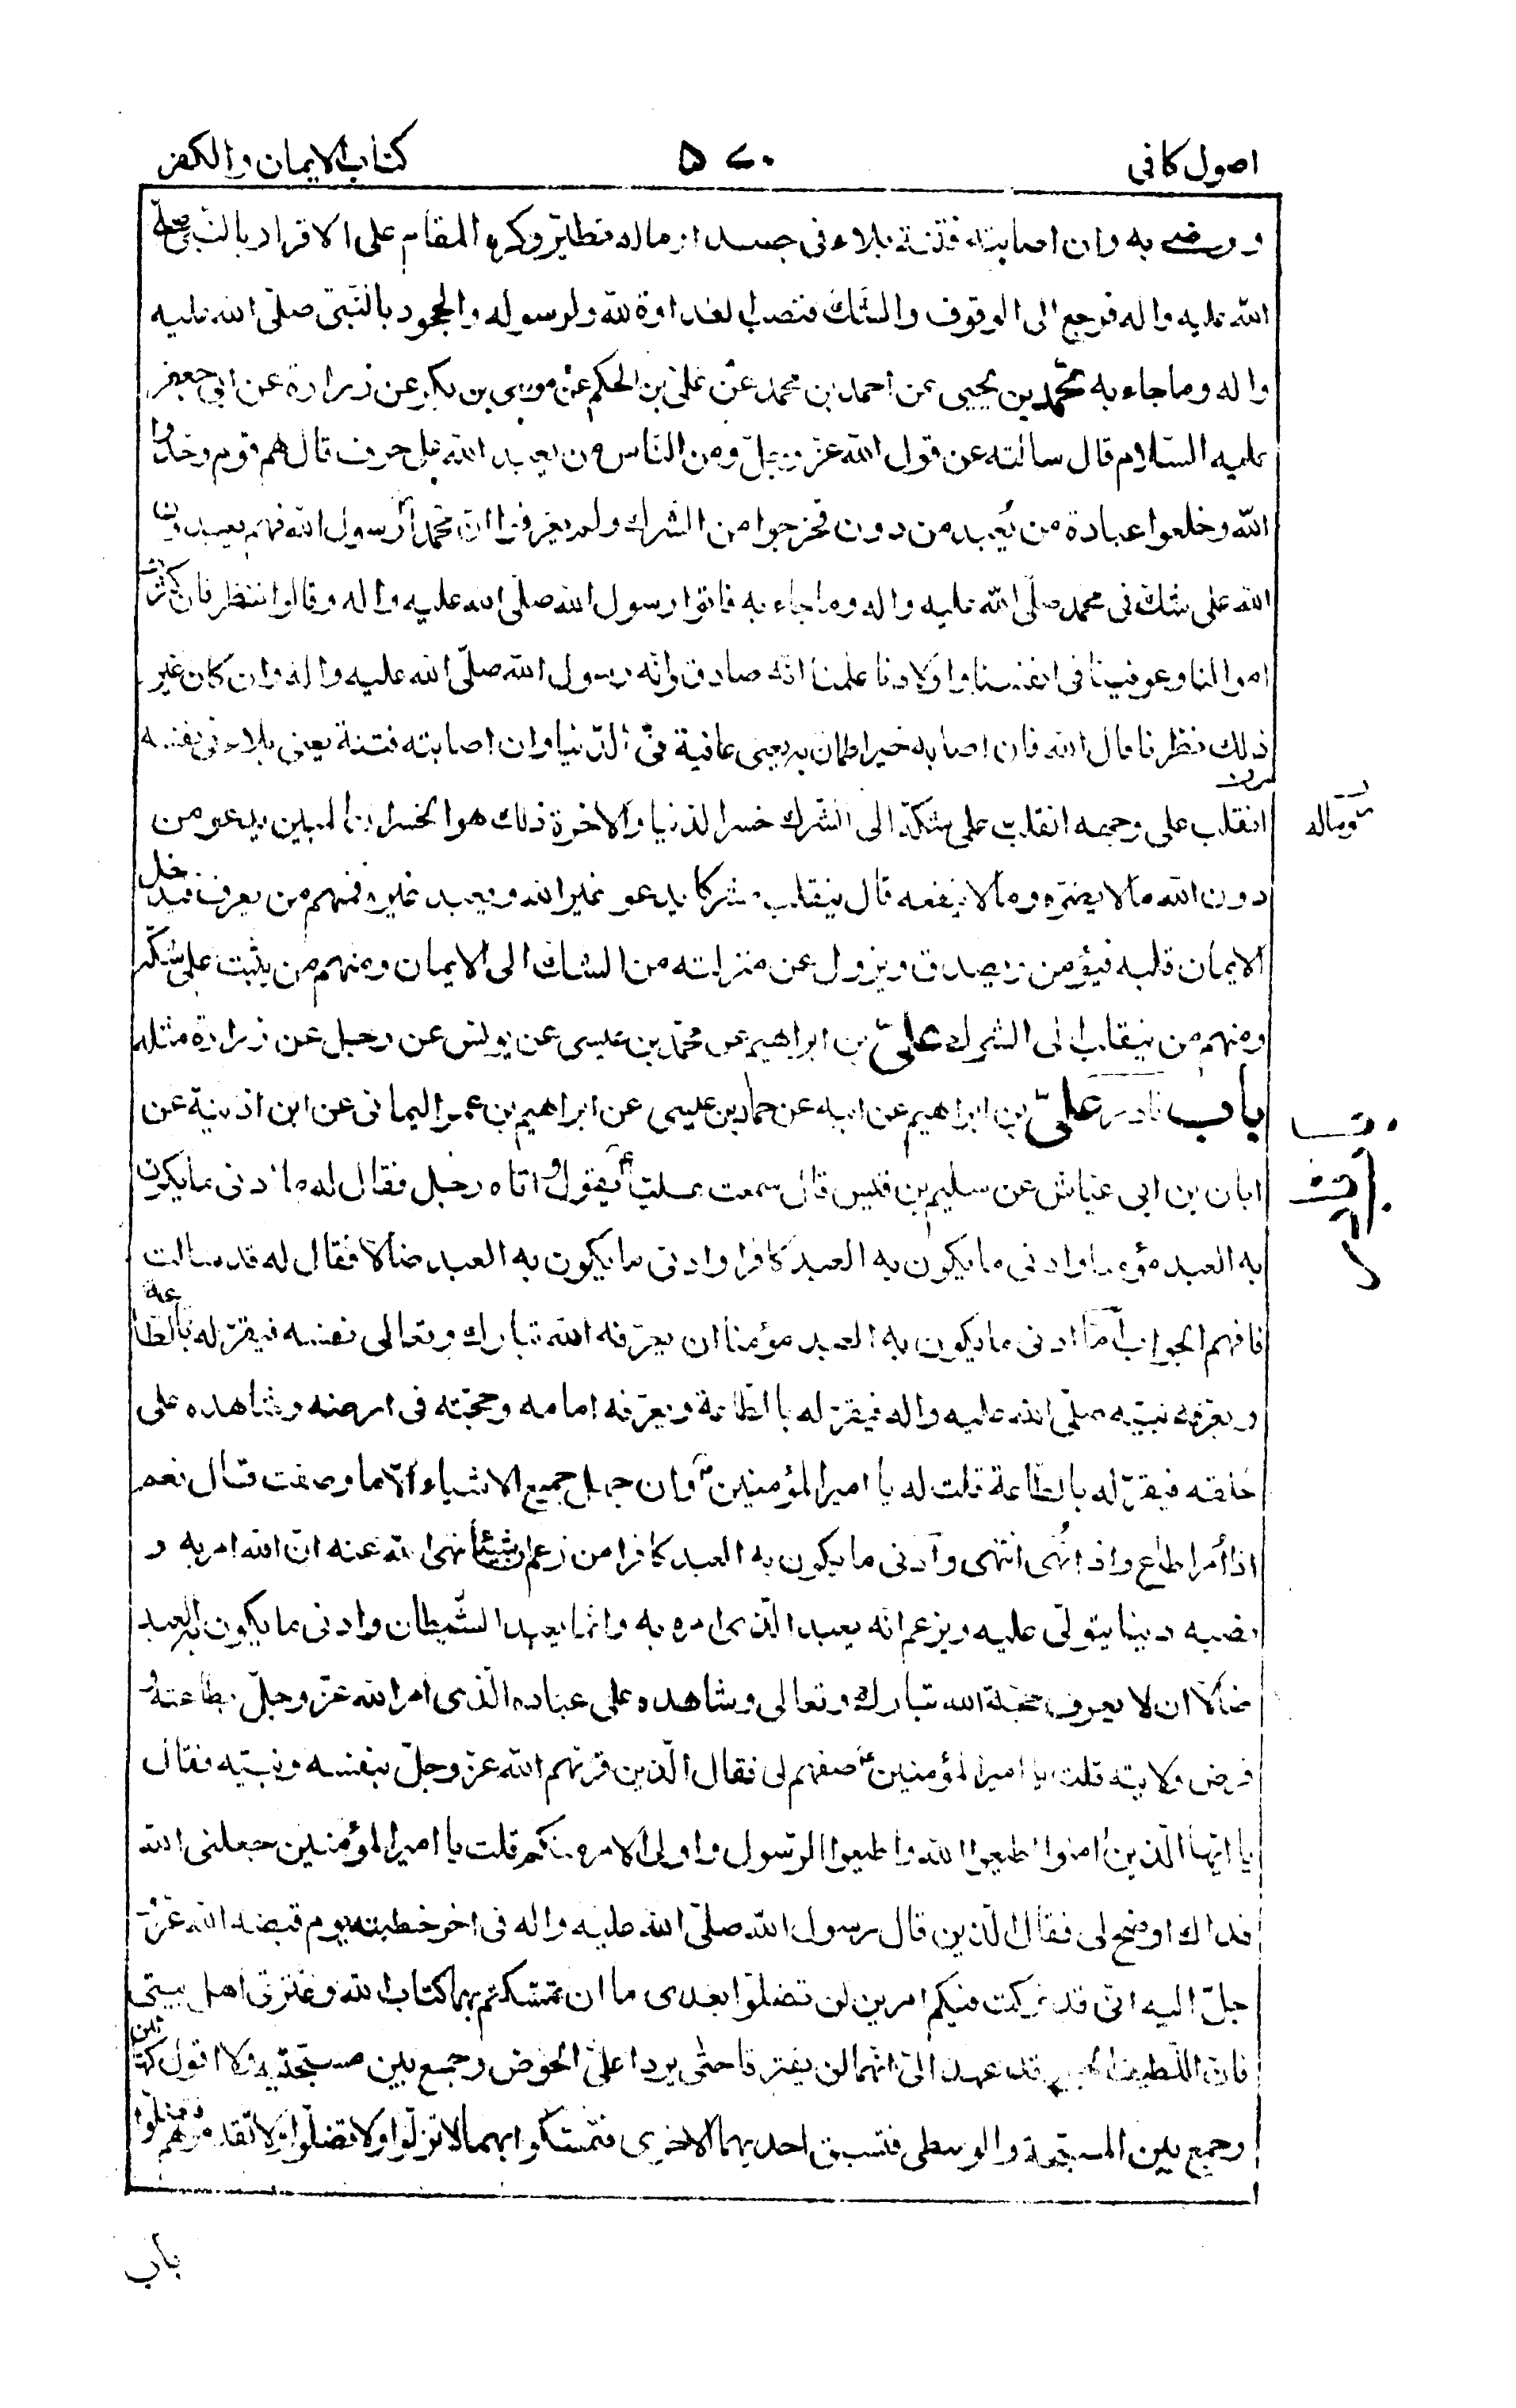 اصول كافى ٥٧٠ كتاب الايمان والكفر
و رضى به وان اصابته فتنة بلاء فى جسده او ماله تطيّر وكره المقام على الاقرار بالنّبىّ صلّى
اللّه عليه واله فرجع الى الوقوف والشّك فنصب العداوة للّه ولرسوله والجحود بالنّبىّ صلّى اللّه عليه
واله وما جاء به محمّد بن يحيى عن احمد بن محمد عن علىّ بن الحكم عن موسى بن بكر عن زرارة عن ابى جعفر
عليه السّلام قال سالته عن قول اللّه عزّ وجلّ ومن النّاس من يعبد اللّه على حرف قال هم قوم وحّدوا
اللّه وخلعوا عبادة من يُعبد من دون فخرجوا من الشرك ولم يعرفوا انّ محمّداً رسول اللّه فهم يعبدون
اللّه على شك فى محمد صلّى اللّه عليه واله وما جاء به فاتوا رسول اللّه صلّى اللّه عليه واله وقالوا ننظر فان كثرت
اموالنا وعوفينا فى انفسنا واولادنا علمنا انّه صادق وانّه رسول اللّه صلّى اللّه عليه واله وان كان غير
ذلك نظرنا قال اللّه فان اصابه خير اطمان به يعنى عافية فى الدّنيا وان اصابته فتنة يعنى بلاء فى نفسه
وماله
انقلب على وجهه انقلب على شكّه الى الشّرك خسر الدّنيا والاخرة ذلك هو الخسران المبين يدعو من
دون اللّه ما لا يضرّه وما لا ينفعه قال ينقلب مشركا يدعو غير اللّه ويعبد غيره فمنهم من يعرف فيدخل
الايمان قلبه فيؤمن ويصدق ويزول عن منزلته من الشك الى الايمان ومنهم من يثبت على شكّه
ومنهم من ينقلب الى الشرك علىّ بن ابراهيم عن محمّد بن عيسى عن يونس عن رجل عن زرارة مثله
باب نادر علىّ بن ابراهيم عن ابيه عن حماد بن عيسى عن ابراهيم بن عمر اليمانى عن ابن اذينة عن
ابان بن ابى عيّاش عن سليم بن قيس قال سمعت عليّاً ع يقول و اتاه رجل فقال له ما ادنى ما يكون
به العبد مؤمنا وادنى ما يكون به العبد كافرا وادنى ما يكون به العبد ضالّا فقال له قد سالت
فافهم الجواب امّا ادنى ما يكون به العبد مؤمنا ان يعرّفه اللّه تبارك وتعالى نفسه فيقرّ له بالطاعة
ويعرّفه نبيّه صلّى اللّه عليه واله فيقرّ له بالطّاعة ويعرّفه امامه وحجّته فى ارضه وشاهده على
خلقه فيقرّ له بالطّاعة قلت له يا امير المؤمنين وان جهل جميع الاشياء الّا ما وصفت قال نعم
اذا أمر اطاع واذا نُهى انتهى وأدنى ما يكون به العبد كافرا من زعم ان شيئاً نهى اللّه عنه انّ اللّه امر به و
نصبه دينا يتولّى عليه ويزعم انّه يعبد الّذى امره به وانّما يعبد الشّيطان وادنى ما يكون به العبد
ضالّا ان لا يعرف حجّة اللّه تبارك وتعالى وشاهده على عباده الّذى امر اللّه عزّ وجلّ بطاعته و
فرض ولايته قلت يا امير المؤمنين صفهم لى فقال الّذين قرنهم اللّه عزّ وجلّ بنفسه ونبيّه فقال
يا ايّها الّذين أمنوا اطيعوا اللّه واطيعوا الرّسول واولى الامر منكم قلت يا امير المؤمنين جعلنى اللّه
فداك اوضح لى فقال الّذين قال رسول اللّه صلّى اللّه عليه واله فى اخر خطبته يوم قبضه اللّه عزّ و
جلّ اليه انّى قد تركت فيكم امرين لن تضلّوا بعدى ما ان تمسّكتم بهما كتاب اللّه وعترتى اهل بيتى
فانّ اللّطيف الخبير قد عهد الىّ انّهما لن يفترقا حتّى يردا علىّ الحوض وجمع بين مسبّحتيه ولا اقول كهاتين
وجمع بين المسبّحة والوسطى فتسبق احديهما الاخرى فتمسّكوا بهما لا تزلّوا ولا تضلّوا ولا تقدّموهم فتضلّوا
باب